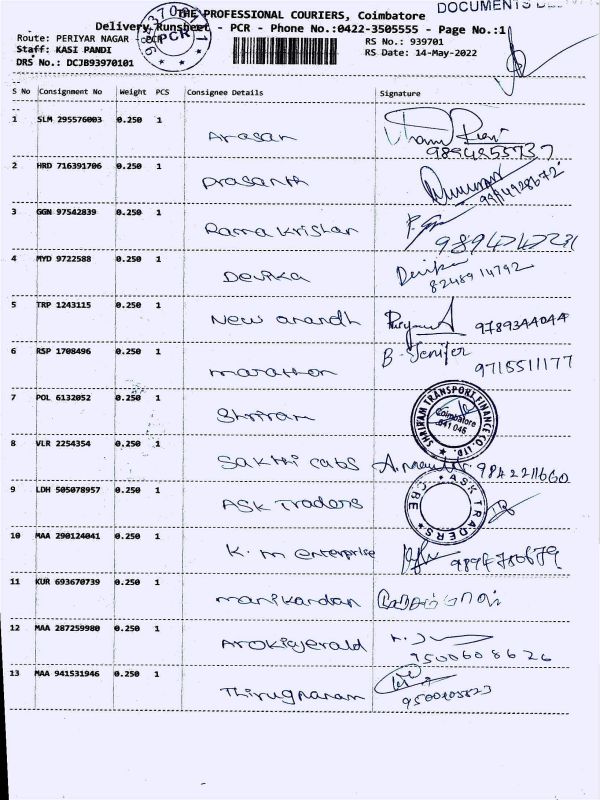 DOCUMENTS
THE PROFESSIONAL COURIERS, Coimbatore
Delivery Runsheet - PCR - Phone No.:0422-3505555 - Page No.:1
Route: PERIYAR NAGAR - PCR
RS No.: 939701
Staff: KASI PANDI
RS Date: 14-May-2022
DRS No.: DCJB93970101
PCR
S No Consignment No Weight PCS Consignee Details Signature
1 SLM 295576003 0.250 1 Arasan
9894255737
2 HRD 716391706 0.250 1 Prasanth
9994928672
3 GGN 97542839 0.250 1 Rama Krishan
4 MYD 9722588 0.250 1 Devika Devika
8248914792
5 TRP 1243115 0.250 1 New anandh 9789344044
6 RSP 1708496 0.250 1 marathon B. Jenifer
9715511177
7 POL 6132052 0.250 1 Shriram
SHRIRAM TRANSPORT FINANCE CO. LTD.
Coimbatore
641 045
8 VLR 2254354 0.250 1 Sakthi cabs 9842211660
9 LDH 505078957 0.250 1 ASK Traders
ASK TRADERS CBE
10 MAA 290124041 0.250 1 K. m enterprise 9894786679
11 KUR 693670739 0.250 1 manikandan
12 MAA 287259980 0.250 1 Arokiajerald
9500608626
13 MAA 941531946 0.250 1 Thirugnanam